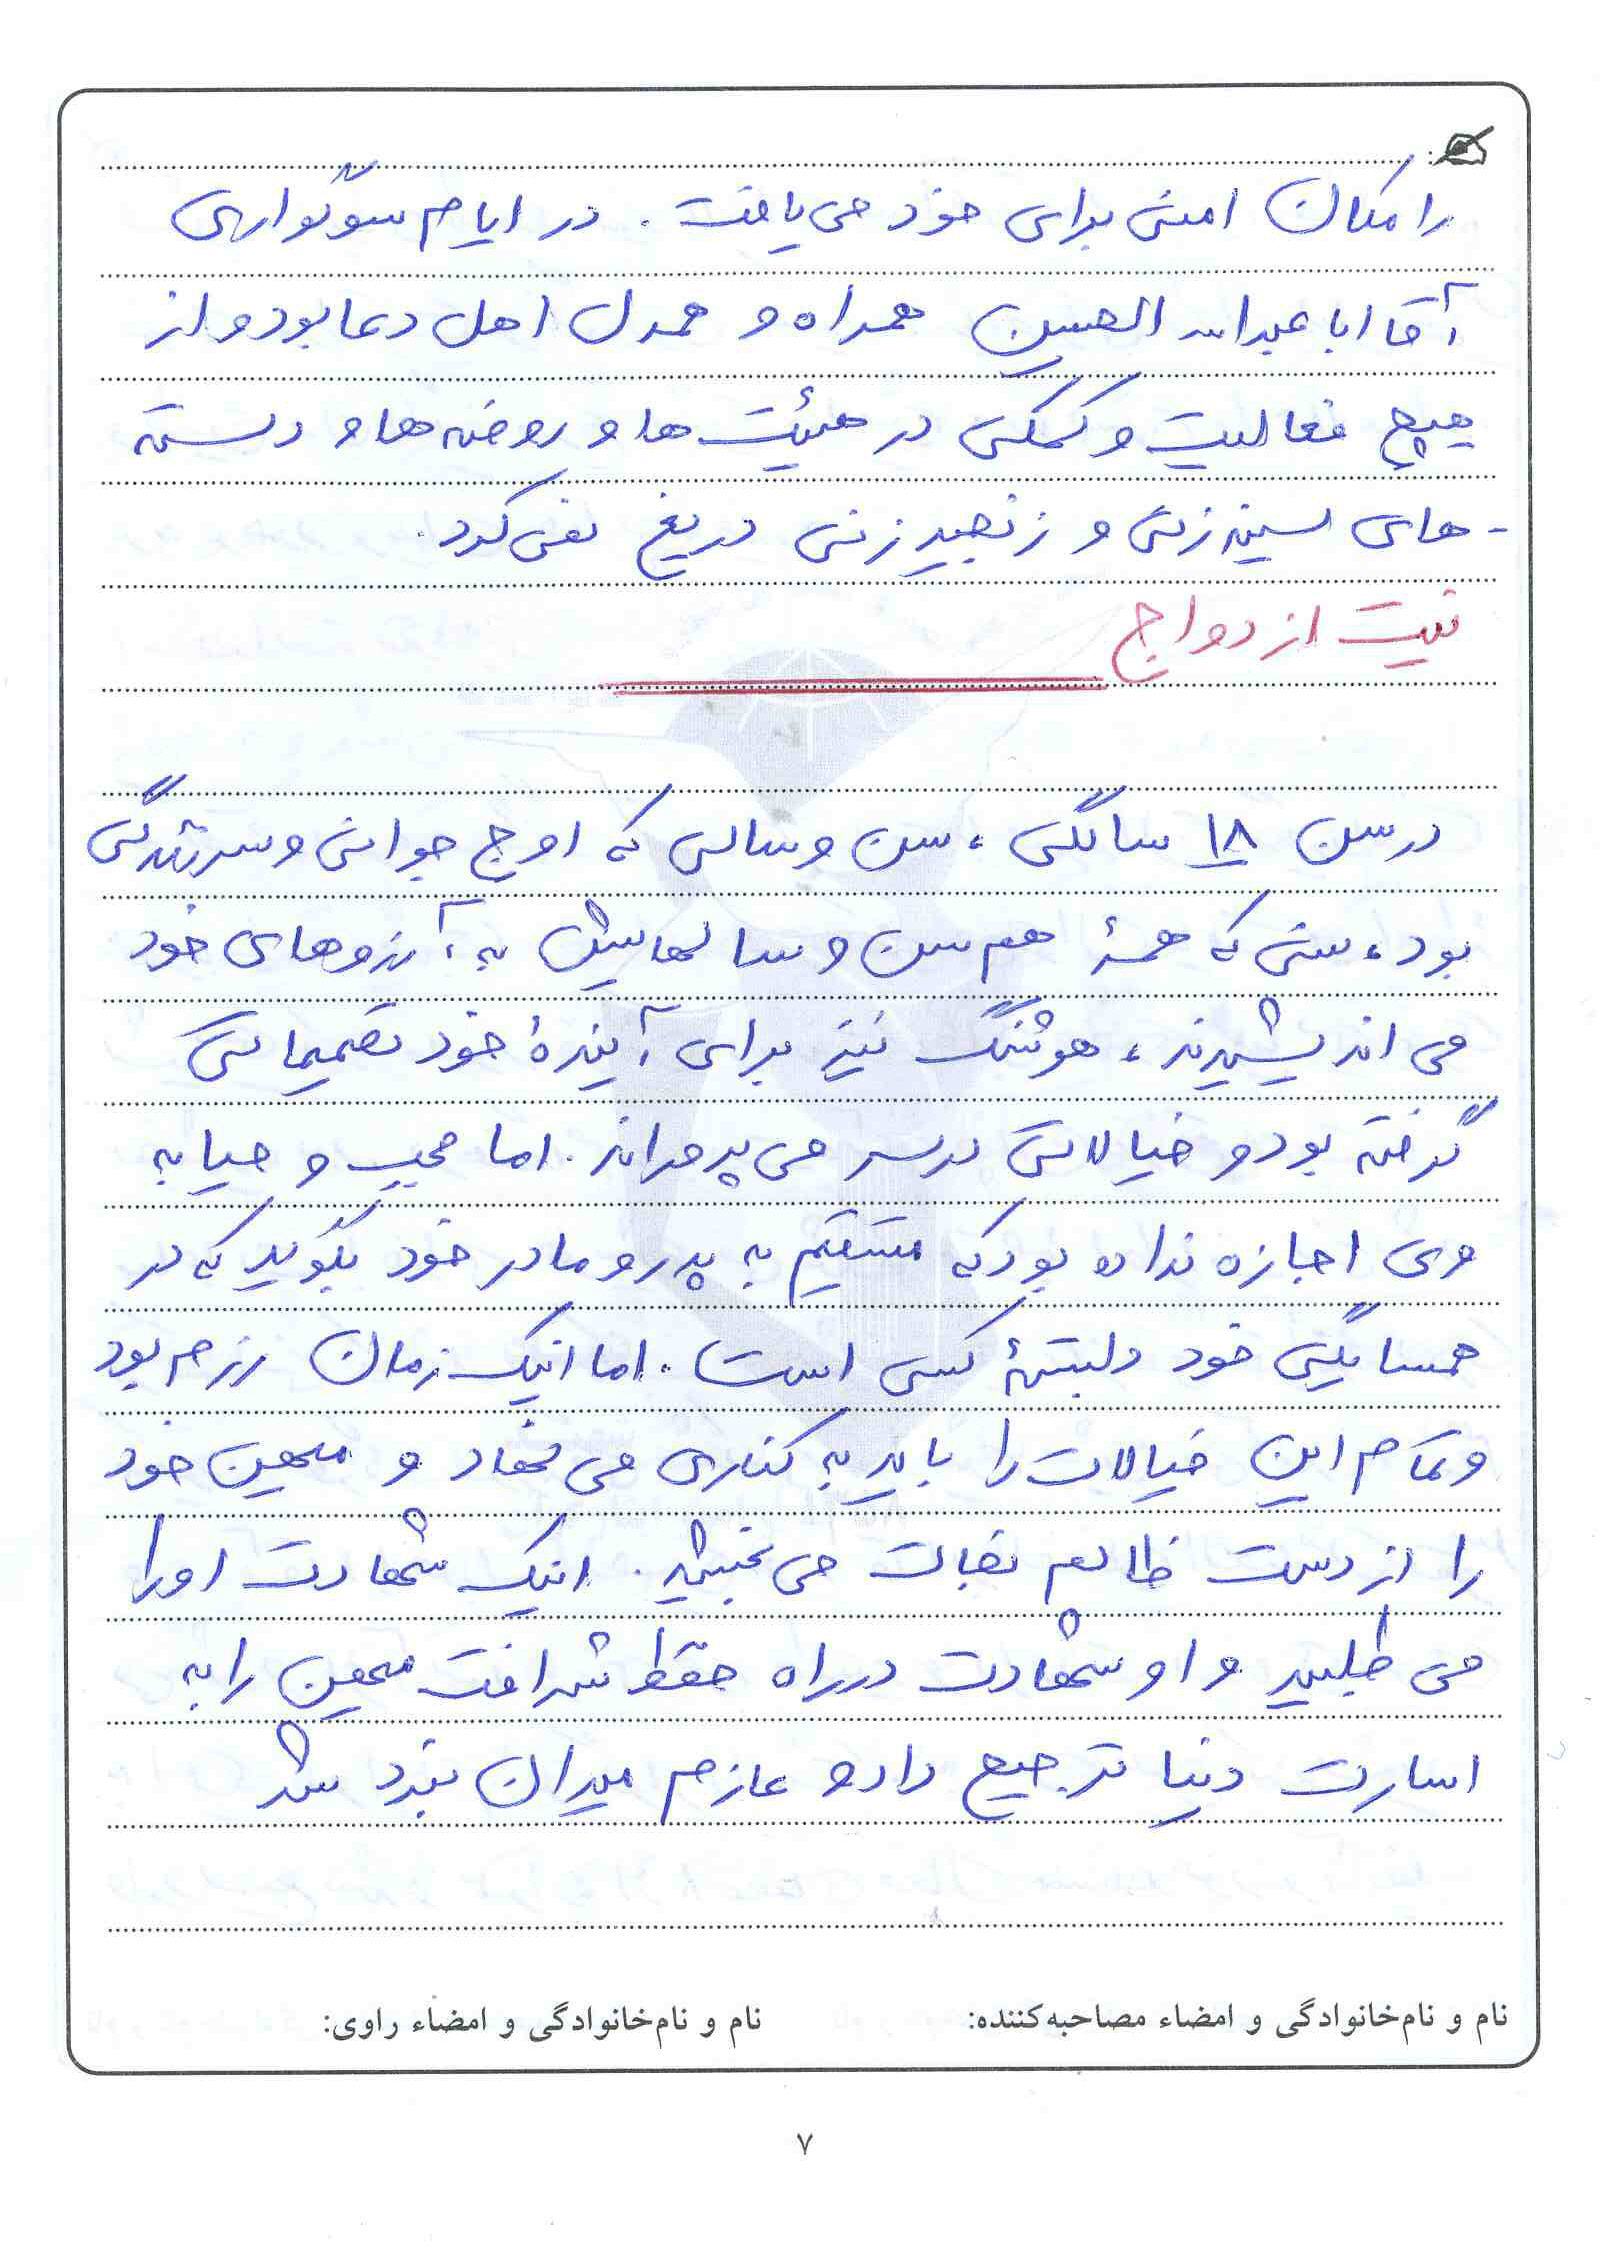 را مکان امنی برای خود می یافت . در ایام سوگواری
آقا ابا عبدالله الحسین همراه و همدل اهل دعا بود و از
هیچ فعالیت و کمکی در هیئت ها و روضه ها و دسته
- های سینه زنی و زنجیر زنی دریغ نمی کرد .
نیت ازدواج
در سن ۱۸ سالگی ، سن و سالی که اوج جوانی و سرزندگی
بود ، سنی که همهٔ هم سن و سالهایش به آرزوهای خود
می اندیشیدند ، هوشنگ نیز برای آیندهٔ خود تصمیماتی
گرفته بود و خیالاتی در سر می پروراند . اما حجب و حیا به
وی اجازه نداده بود که مستقیم به پدر و مادر خود بگوید که در
همسایگی خود دلبستهٔ کسی است . اما اینک زمان رزم بود
و تمام این خیالات را باید به کناری می نهاد و میهن خود
را از دست ظالم نجات می بخشید . اینک شهادت او را
می طلبید و او شهادت در راه حفظ شرافت میهن را به
اسارت دنیا ترجیح داد و عازم میدان نبرد شد
نام و نام‌خانوادگی و امضاء مصاحبه‌کننده: نام و نام‌خانوادگی و امضاء راوی:
۷